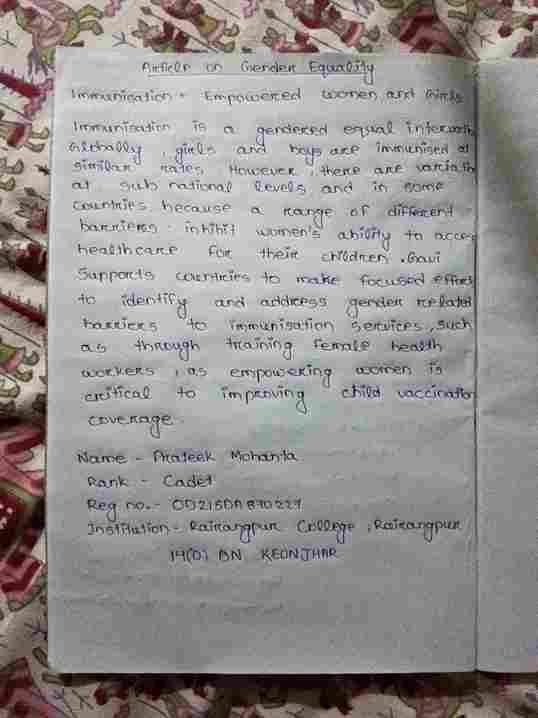 Article on Gender Equality
Immunisation - Empowered Women and Girls
Immunisation is a gendered equal
Globally, girls and boys are immunised at
similar rates. However, there are
at sub national levels and in some
countries because a range of different
barriers inhibit women's ability to
healthcare for their children. Gavi
Supports countries to make focused
to identify and address gender related
barriers to immunisation services, such
as through training female health
workers, as empowering women is
critical to improving child vaccination
coverage.
Name - Prateek Mohanta
Rank - Cadet
Reg no.- OD21SDA870227
Institution - Rairangpur College, Rairangpur
14(O) BN KEONJHAR